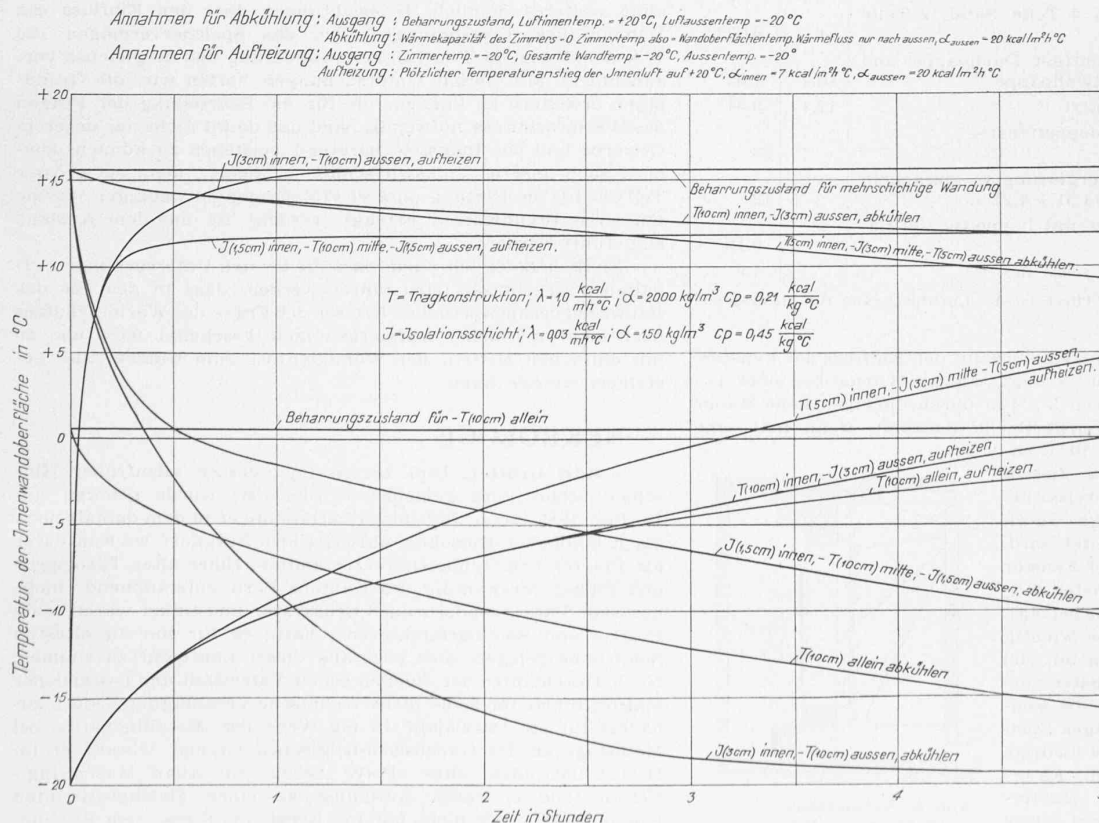 Annahmen für Abkühlung: Ausgang : Beharrungszustand, Luftinnentemp. = +20°C, Luftaussentemp = -20°C
Abkühlung: Wärmekapazität des Zimmers - 0 Zimmertemp. also = Wandoberflächentemp. Wärmefluss nur nach aussen, α aussen = 20 kcal/m²h°C
Annahmen für Aufheizung: Ausgang : Zimmertemp. = -20°C, Gesamte Wandtemp = -20°C, Aussentemp. = -20°
Aufheizung: Plötzlicher Temperaturanstieg der Jnnenluft auf +20°C, α innen = 7 kcal/m²h°C, α aussen = 20 kcal/m²h°C
+20
J(3cm) innen, -T(10cm) aussen, aufheizen
+15
Beharrungszustand für mehrschichtige Wandung
T(10cm) innen, -J(3cm) aussen, abkühlen
J(1,5cm) innen, -T(10cm) mitte, -J(1,5cm) aussen, aufheizen.
T(5cm) innen, -J(3cm) mitte, -T(5cm) aussen abkühlen
+10
T = Tragkonstruktion; λ = 1,0 kcal/mh°C; α = 2000 kg/m³ Cp = 0,21 kcal/kg°C
J = Jsolationsschicht; λ = 0,03 kcal/mh°C; α = 150 kg/m³ Cp = 0,45 kcal/kg°C
+5
T(5cm) innen, -J(3cm) mitte -T(5cm) aussen, aufheizen.
Beharrungszustand für -T(10cm) allein
0
T(10cm) innen, -J(3cm) aussen, aufheizen
T(10cm) allein, aufheizen
-5
J(1,5cm) innen, -T(10cm) mitte, -J(1,5cm) aussen, abkühlen
-10
T(10cm) allein abkühlen
-15
J(3cm) innen, -T(10cm) aussen, abkühlen
-20
0 1 2 3 4
Zeit in Stunden
Temperatur der Jnnenwandoberfläche in °C